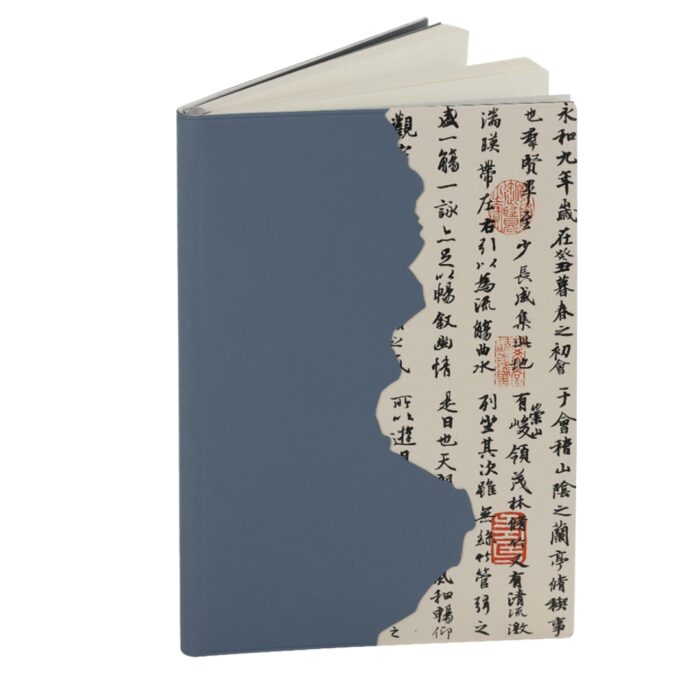 永和九年歲在癸丑暮春之初會于會稽山陰之蘭亭脩稧事
也羣賢畢至少長咸集此地有崇山峻領茂林脩竹又有清流激
湍暎帶左右引以為流觴曲水列坐其次雖無絲竹管弦之
盛一觴一詠亦足以暢叙幽情是日也天和暢仰
觀所以遊之